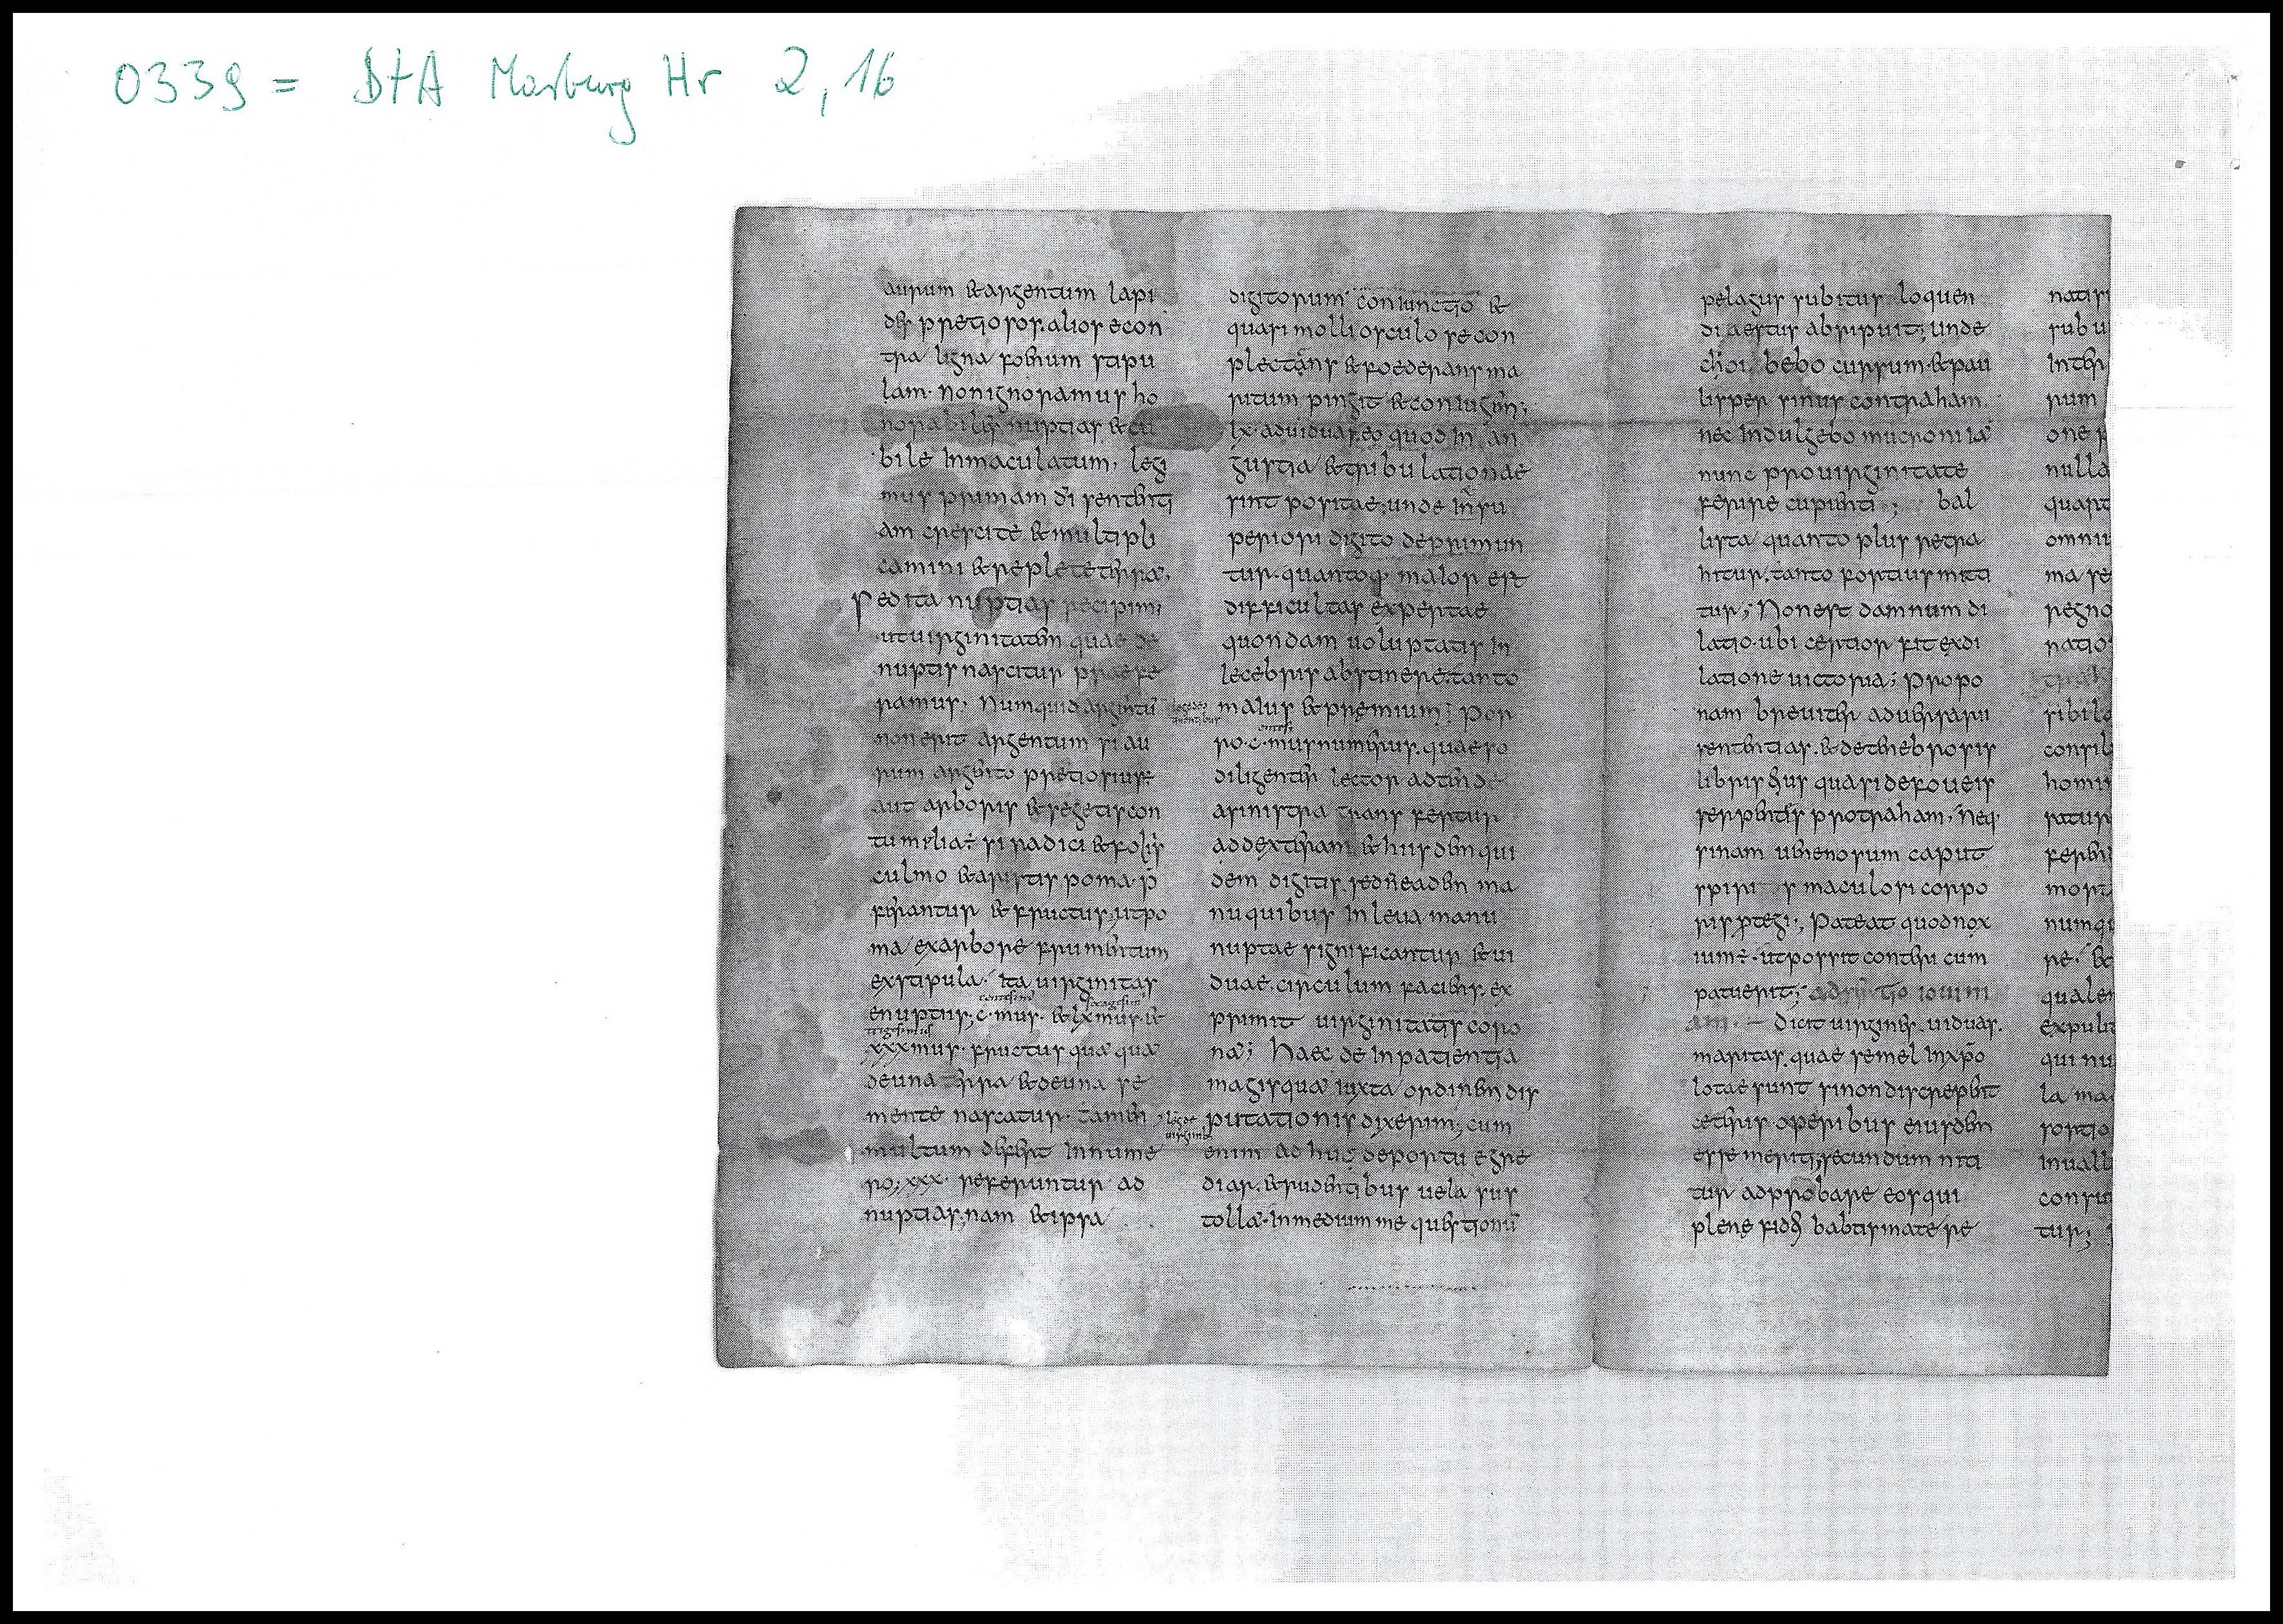 0339 = DtA Marburg Hr 2,16
aurum &argentum lapi
des pretiosos. alios econ
tra ligna foenum stipu
lam. non ignoramus ho
norabiles nuptias & cu
bile inmaculatum, legi
mus primam di sententi
am crescite & multipli
camini & replete terrā,
sed ita nuptias recipim;
ut virginitatem quae de
nuptis nascitur praefe
ramus, Numquid argentū
non erit argentum si au
rum argento pretiosius÷
aut arboris & segetis con
tumelia÷ si radici & foliis
culmo & aristis poma. p̄
ferantur & fructus, ut po
ma ex arbore frumentum
ex stipula. ita virginitas
centesim' sexagesim'
e nuptiis; c.mus. & lxmus. &
trigesimus
xxxmus. fructus quā quā
de una terra & de una se
mente nascatur. tamen
multum differt in nume
ro; xxx. referuntur ad
nuptias; nam & ipsa
digitorum coniunctio &
quasi molli osculo se con
plectans & foederans ma
ritum pingit & coniugem;
lx. ad viduas. eo quod in an
gustia & tribulationae
sint positae; unde in su
periori digito deprimun
tur. quantoq; maior est
difficultas expertae
quondam voluptatis in
lecebris abstinere. tanto
maius & premium; Por
centes'
ro. c.mus numerus. quaeso
diligenter lector adtende
a sinistra transfertur
ad dexteram & hisdem qui
dem digitis. sed non eadem ma
nu quibus in leva manu
nuptae significantur & vi
duae. circulum faciens. ex
primit virginitatis coro
nā; Haec de inpatientia
magis quā iuxta ordinem dis
putationis dixerim; cum
enim adhuc de portu egre
diar. & rudentibus vela sus
tollā. in medium me questionū
pelagus subitus loquen
di aestus abripuit; unde
cohibebo cursum. & pau
lisper sinus contraham.
nec indulgebo mucroni iā
nunc pro virginitate
ferire cupienti; bal
lista quanto plus retra
hitur. tanto fortius mitti
tur; Non est damnum di
latio. ubi certior fit ex di
latione victoria; Propo
nam breviter adversarii
sententias. & de tenebrosis
libris eius quasi de foveis
serpentes protraham, neq;
sinam venenorum caput
spiris maculosi corpo
ris ptegi; Pateat quod nox
ium÷. ut possit conteri cum
patuerit;
Dicit virgines. viduas.
maritas. quae semel in xp̄o
lotae sunt si non discrepent
ceteris operibus eiusdem
esse meriti; secundum niti
tur adprobare eos qui
plene fide babtismate re
natis
sub u
inter
rum
one p
nulla
quart
omniu
ma re
regno
natio
sibilo
consil
homi
ratur
ferbi
mori
numqu
re. &
qualem
expuli
qui nu
la ma
sortio
invall
consu
tur;